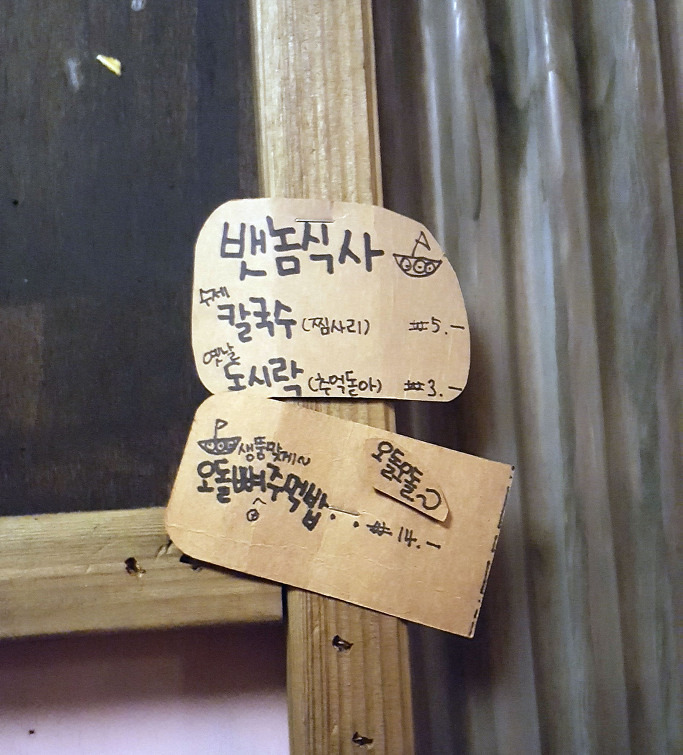 뱃놈식사
수제
칼국수 (찜사리) ₩5.-
옛날
도시락 (추억돋아) ₩3.-
생뚱맞게~
오돌뼈주먹밥.. ₩14.-
오돌오돌~